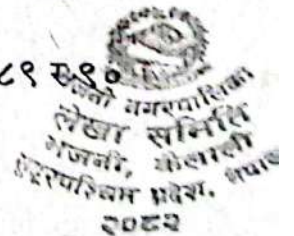 ८९ र ९०
भजनी नगरपालिका
लेखा समिति
भजनी, कैलाली
सुदूरपश्चिम प्रदेश, नेपाल
२०८२